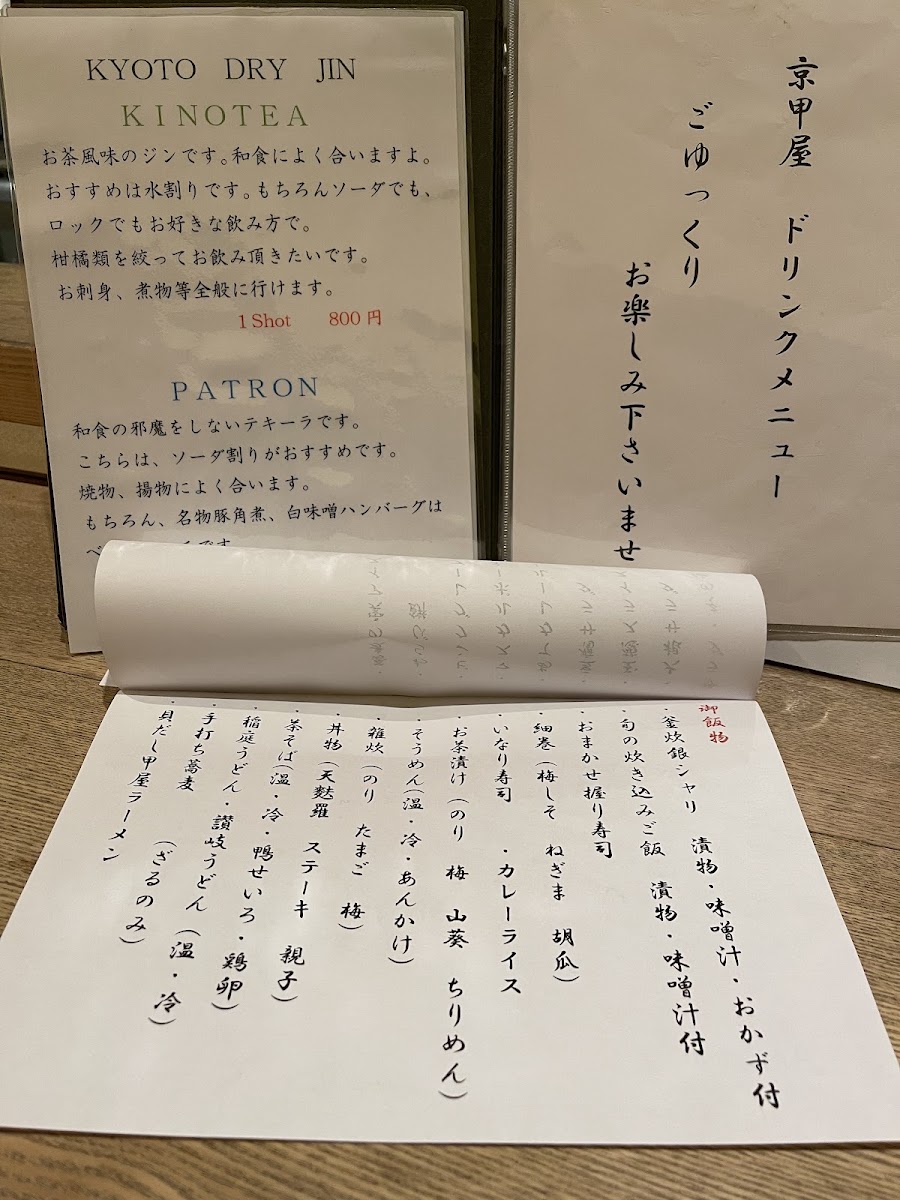 KYOTO DRY JIN
KINOTEA
お茶風味のジンです。和食によく合いますよ。
おすすめは水割りです。もちろんソーダでも、
ロックでもお好きな飲み方で。
柑橘類を絞ってお飲み頂きたいです。
お刺身、煮物等全般に行けます。
1Shot 800円
PATRON
和食の邪魔をしないテキーラです。
こちらは、ソーダ割りがおすすめです。
焼物、揚物によく合います。
もちろん、名物豚角煮、白味噌ハンバーグは
京甲屋 ドリンクメニュー
ごゆっくり
お楽しみ下さいませ
御飯物
・釜炊銀シャリ 漬物・味噌汁・おかず付
・旬の炊き込みご飯 漬物・味噌汁付
・おまかせ握り寿司
・細巻(梅しそ ねぎま 胡瓜)
・いなり寿司 ・カレーライス
・お茶漬け(のり 梅 山葵 ちりめん)
・そうめん(温・冷・あんかけ)
・雑炊(のり たまご 梅)
・丼物(天麩羅 ステーキ 親子)
・茶そば(温・冷・鴨せいろ・鶏卵)
・稲庭うどん・讃岐うどん(温・冷)
・手打ち蕎麦 (ざるのみ)
・貝だし甲屋ラーメン